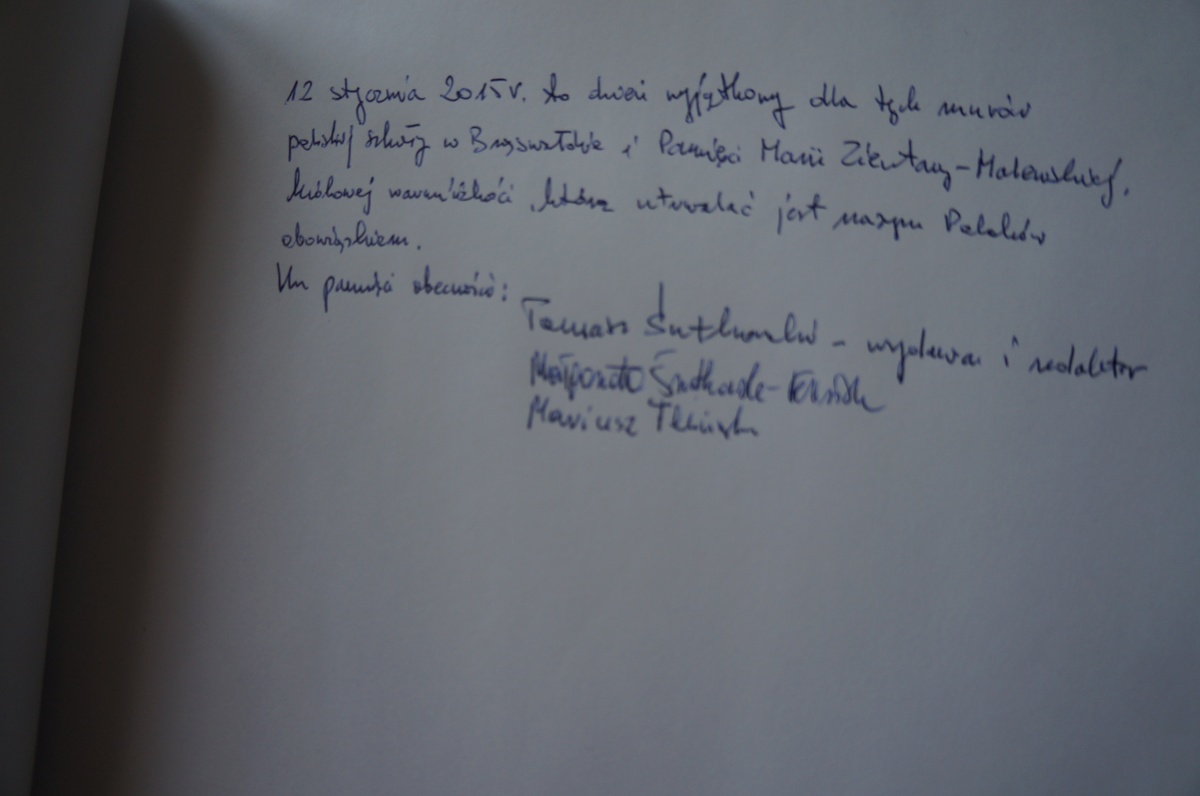 12 stycznia 2015 r. to dzień wyjątkowy dla tych murów
polskiej szkoły w Brąswałdzie i Pamięci Marii Zientary-Malewskiej,
królowej warmińskości, którą utrwalać jest naszym Polaków
obowiązkiem.
Ku pamięci obecności:
Tomasz Śrutkowski - wydawca i redaktor
Małgorzata
Mariusz